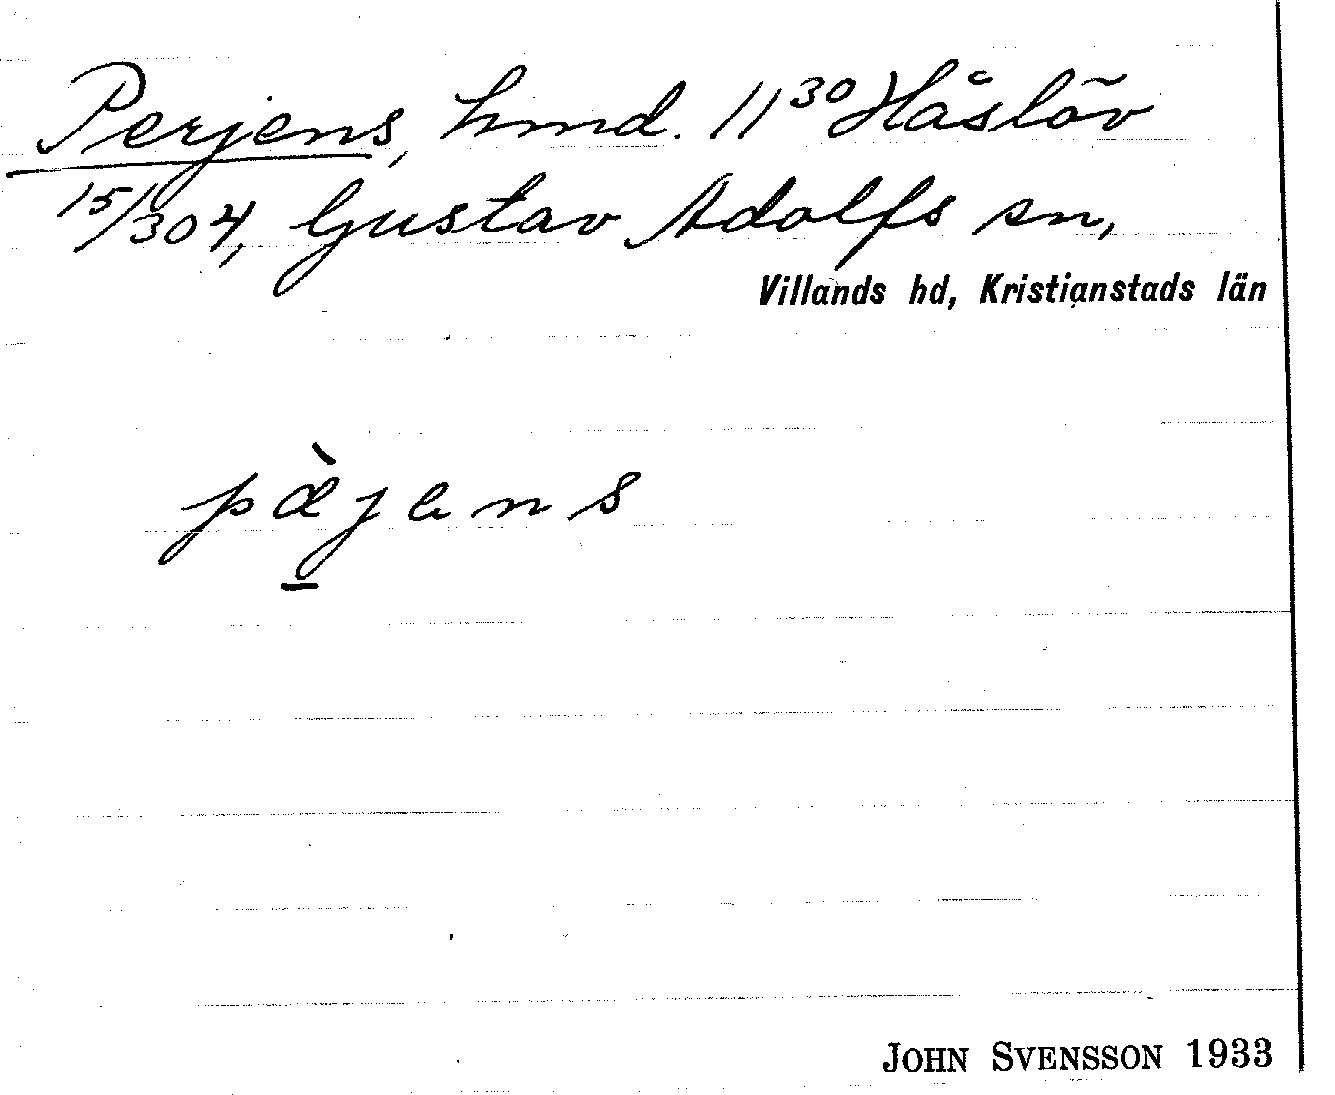 Perjens, hmd. 11³⁰ Håslöv
15/304, Gustav Adolfs sn,
Villands hd, Kristianstads län
pæ̀jens
JOHN SVENSSON 1933